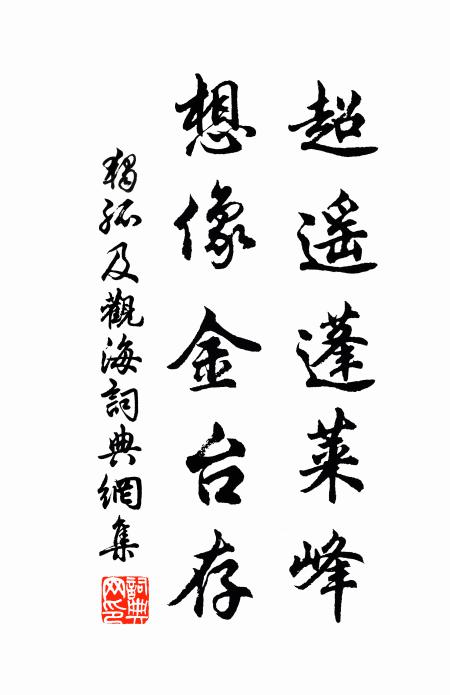 超遥蓬莱峰
想像金台存
獨孤及觀海詞典網集
詞典網印